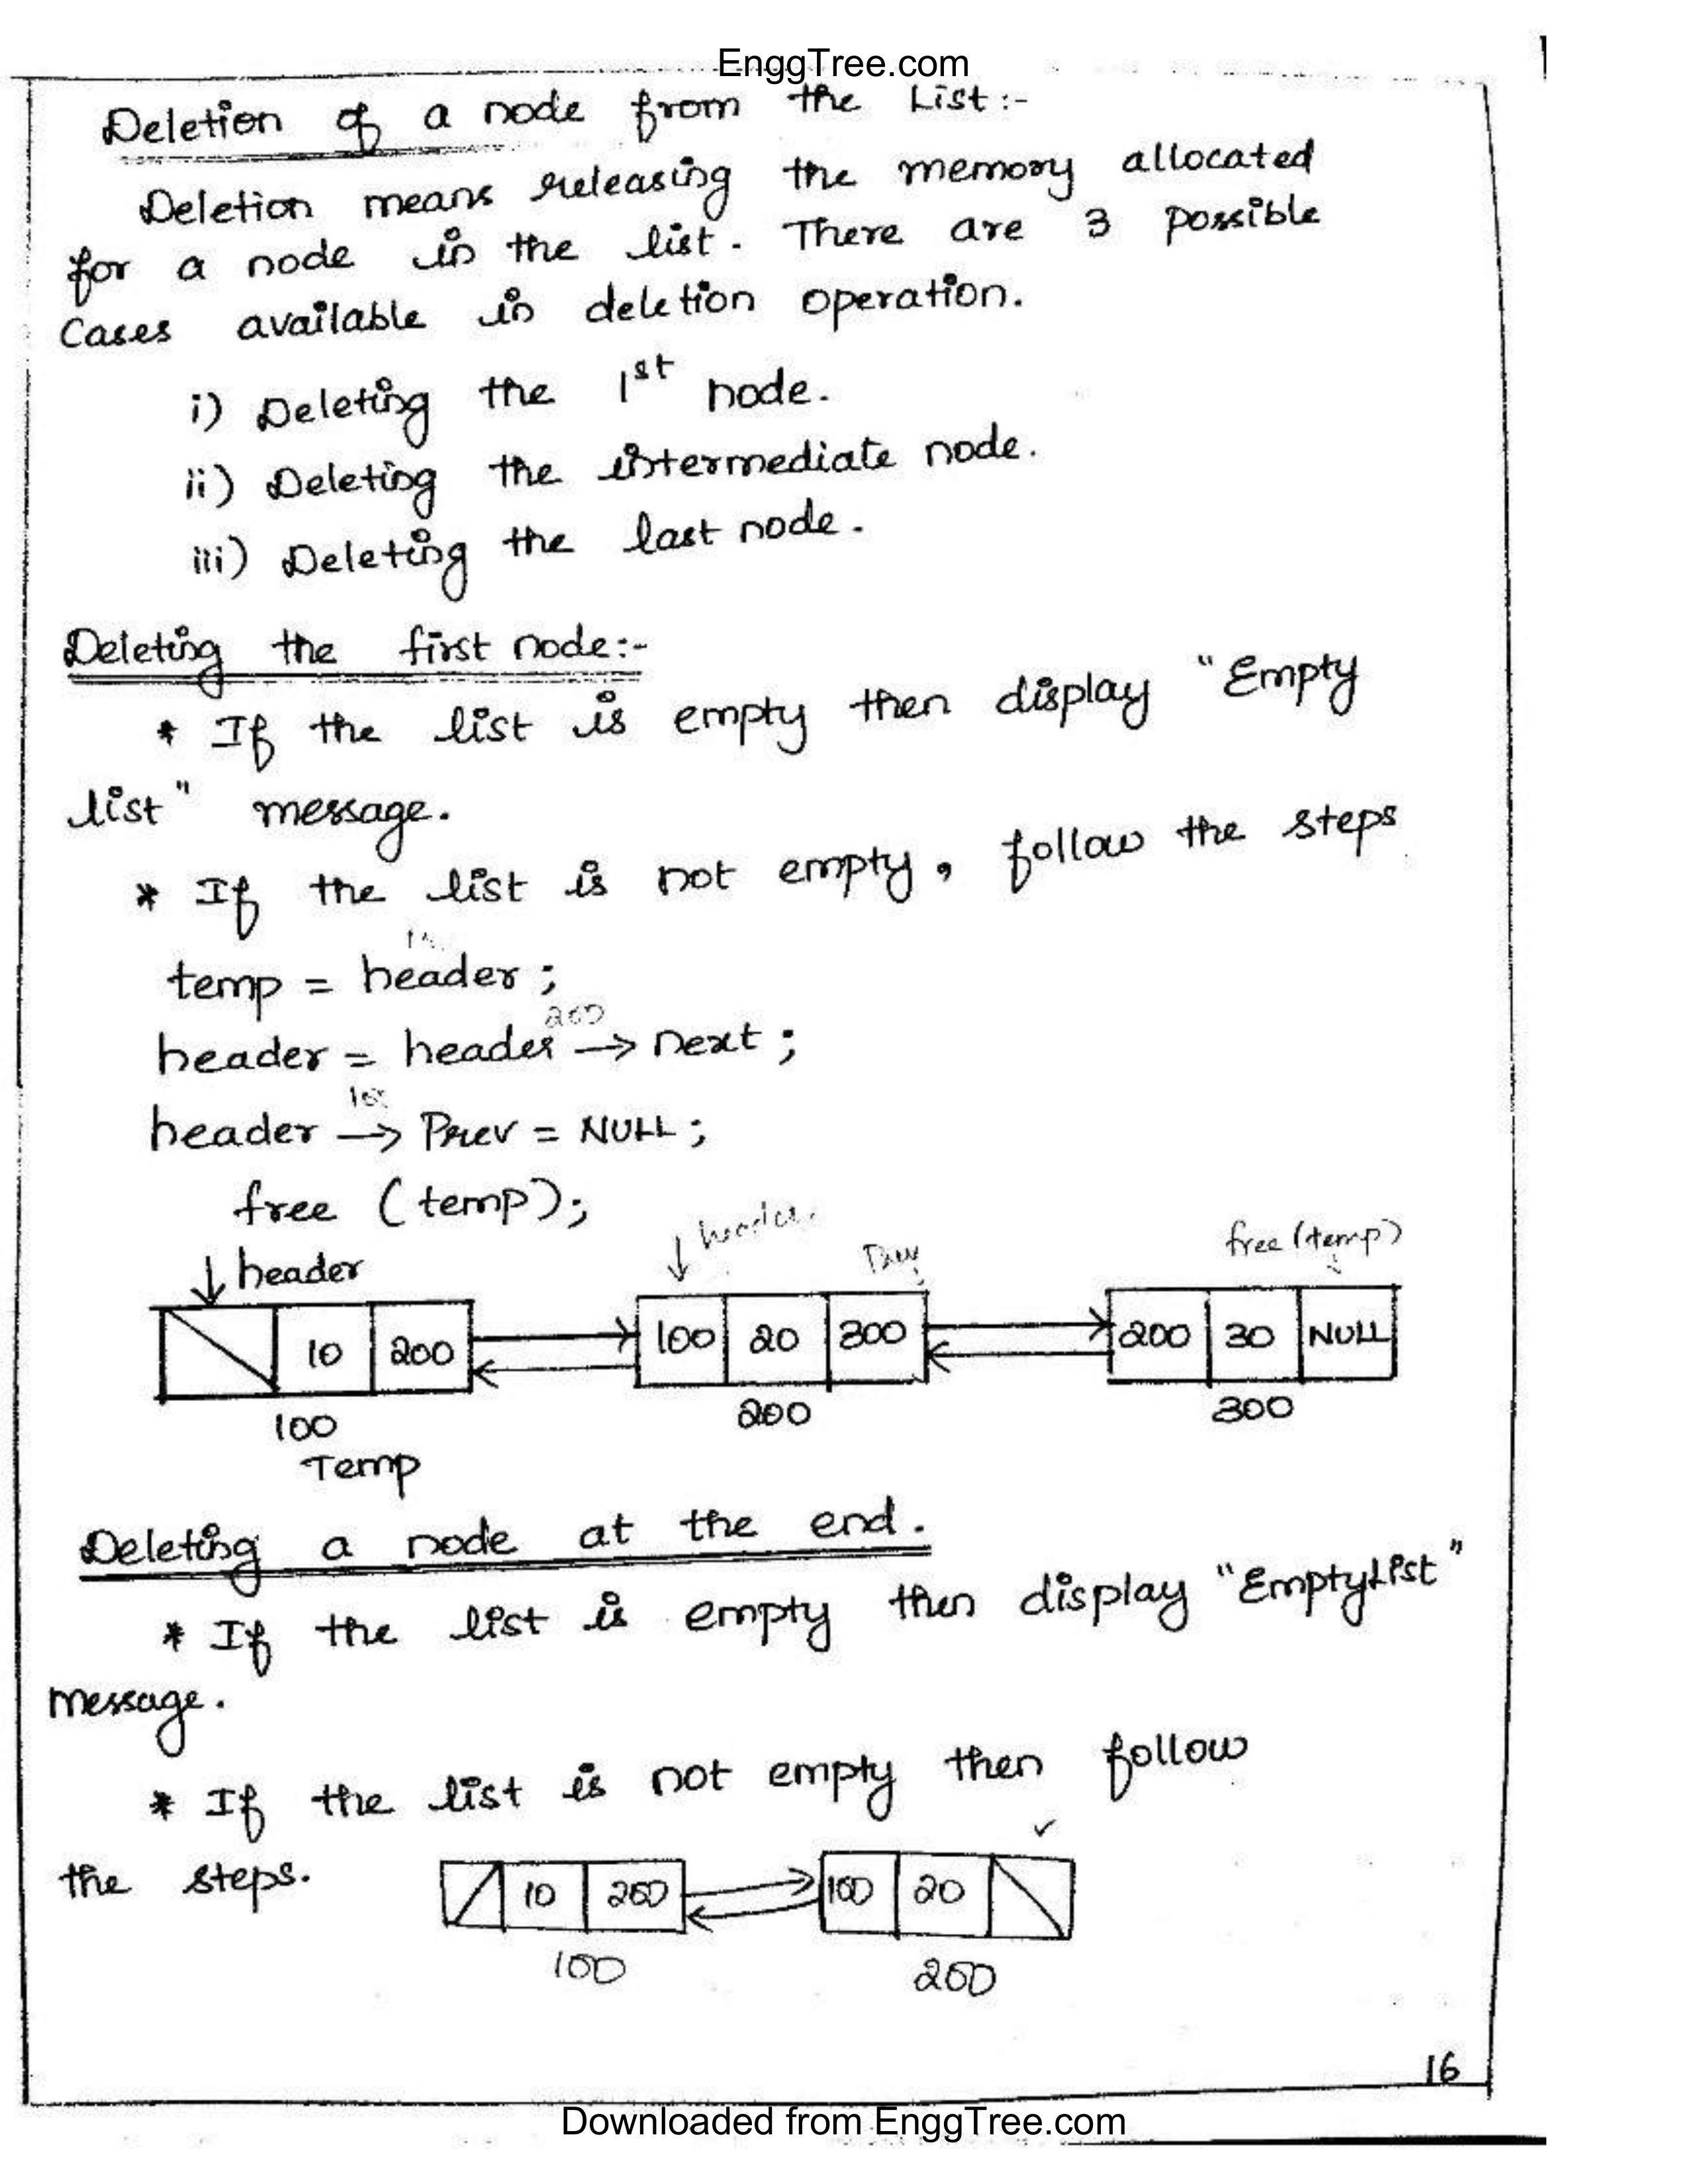 EnggTree.com
Deletion of a node from the List:-
Deletion means releasing the memory allocated
for a node in the list. There are 3 possible
Cases available in deletion operation.
i) Deleting the 1st node.
ii) Deleting the intermediate node.
iii) Deleting the last node.
Deleting the first node:-
* If the list is empty then display "Empty
list" message.
* If the list is not empty, follow the steps
temp = header ;
200
header = header → next ;
header → Prev = NULL ;
free (temp);
↓ header
↓ header
free (temp)
10 200
100 20 300
200 30 NULL
100
200
300
Temp
Deleting a node at the end.
* If the list is empty then display "EmptyList"
message.
* If the list is not empty then follow
the steps.
10 200
100 20
100
200
16
Downloaded from EnggTree.com